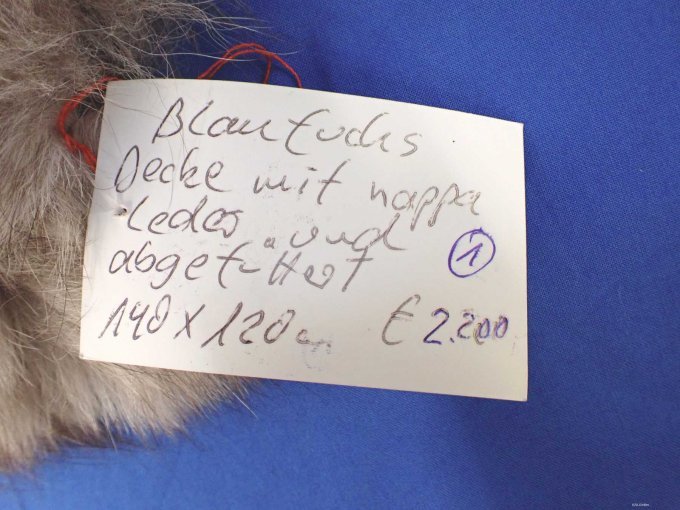 Blaufuchs
Decke mit nappa
Leder und
abgefüttert
140 x 120 cm € 2.200
1